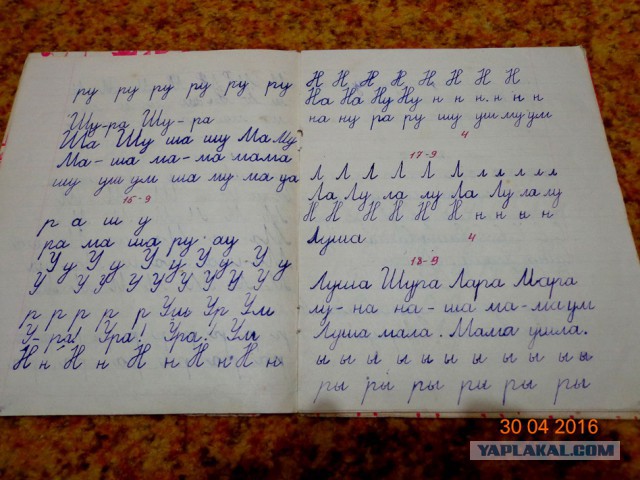 ру ру ру ру ру ру
Шу-ра Шу-ра
Ша Шу ша шу Ма Му
Ма-ша ма-ма мама
шу уш ум ша му ма уа
16-9
р а ш у
ра ма ша ру ау
У у У у У у У у У у
У У У У У У У У У
р р р р р р Уш Ур Ум
У-ра! Ура! Ура! Ум
Н н Н н Н н Н н Н н
Н Н Н Н Н Н Н Н
На На Ну Ну н н н н н
на ну ра ру шу уш му ум
4
17-9
Л Л Л Л Л Л л л л л л
Ла Лу ла лу Ла Лу ла лу
Н Н Н Н Н Н н н н н
Луша
4
18-9
Луша Шура Лара Мара
лу-на на-ша ма-ма ум
Луша мала. Мама ушла.
ы ы ы ы ы ы ы ы ы ы ы
ры ры ры ры ры ры
30 04 2016
YAPLAKAL.COM